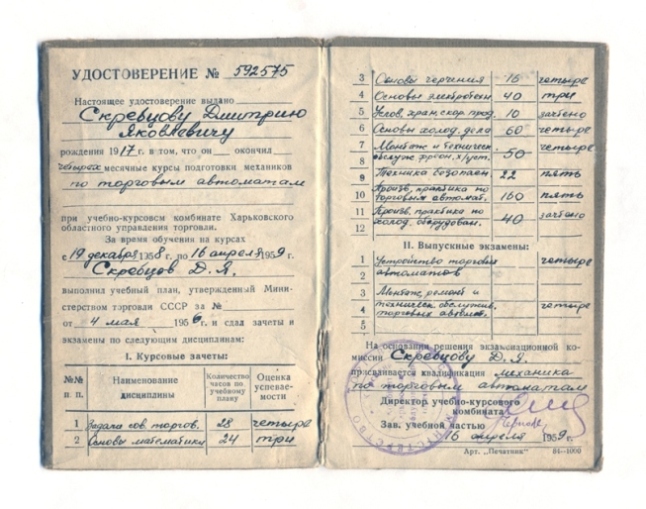 УДОСТОВЕРЕНИЕ № 592575
Настоящее удостоверение выдано
Скребцову Дмитрию
Яковлевичу
рождения 1917 г. в том, что он окончил
четырех месячные курсы подготовки механиков
по торговым автоматам
при учебно-курсовсм комбинате Харьковского
областного управления торговли.
За время обучения на курсах
с 19 декабря 1958 г. по 16 апреля 1959 г.
Скребцов Д.Я.
выполнил учебный план, утвержденный Мини-
стерством торговли СССР за №
от 4 мая 1956 г. и сдал зачеты и
экзамены по следующим дисциплинам:
I. Курсовые зачеты:
№№ п. п. Наименование дисциплины Количество часов по учебному плану Оценка успевае-мости
1 Задачи сов. торгов. 28 четыре
2 Основы математики 24 три
3 Основы черчения 16 четыре
4 Основы электротехн 40 три
5 10 зачтено
6 Основы холод. дела 60 четыре
7 Монтаж и техническ. четыре
8 обслуж. фреон. х/уст. 50
9 Техника безопасн 22 пять
10 Произв. практика по торговым автомат. 160 пять
11 Произв. практика по зачтено
12 холод. оборудован. 40
II. Выпускные экзамены:
1 Устройство торговых четыре
2 автоматов
3 Монтаж, ремонт и
4 техническ. обслужив. четыре
торговых автомат.
5
На основании решения экзаменационной ко-
миссии Скребцову Д.Я.
присваивается квалификация механика
по торговым автоматам
Директор учебно-курсового
комбината
Зав. учебной частью
16 апреля 1959 г.
Арт. „Печатник" 84—1000